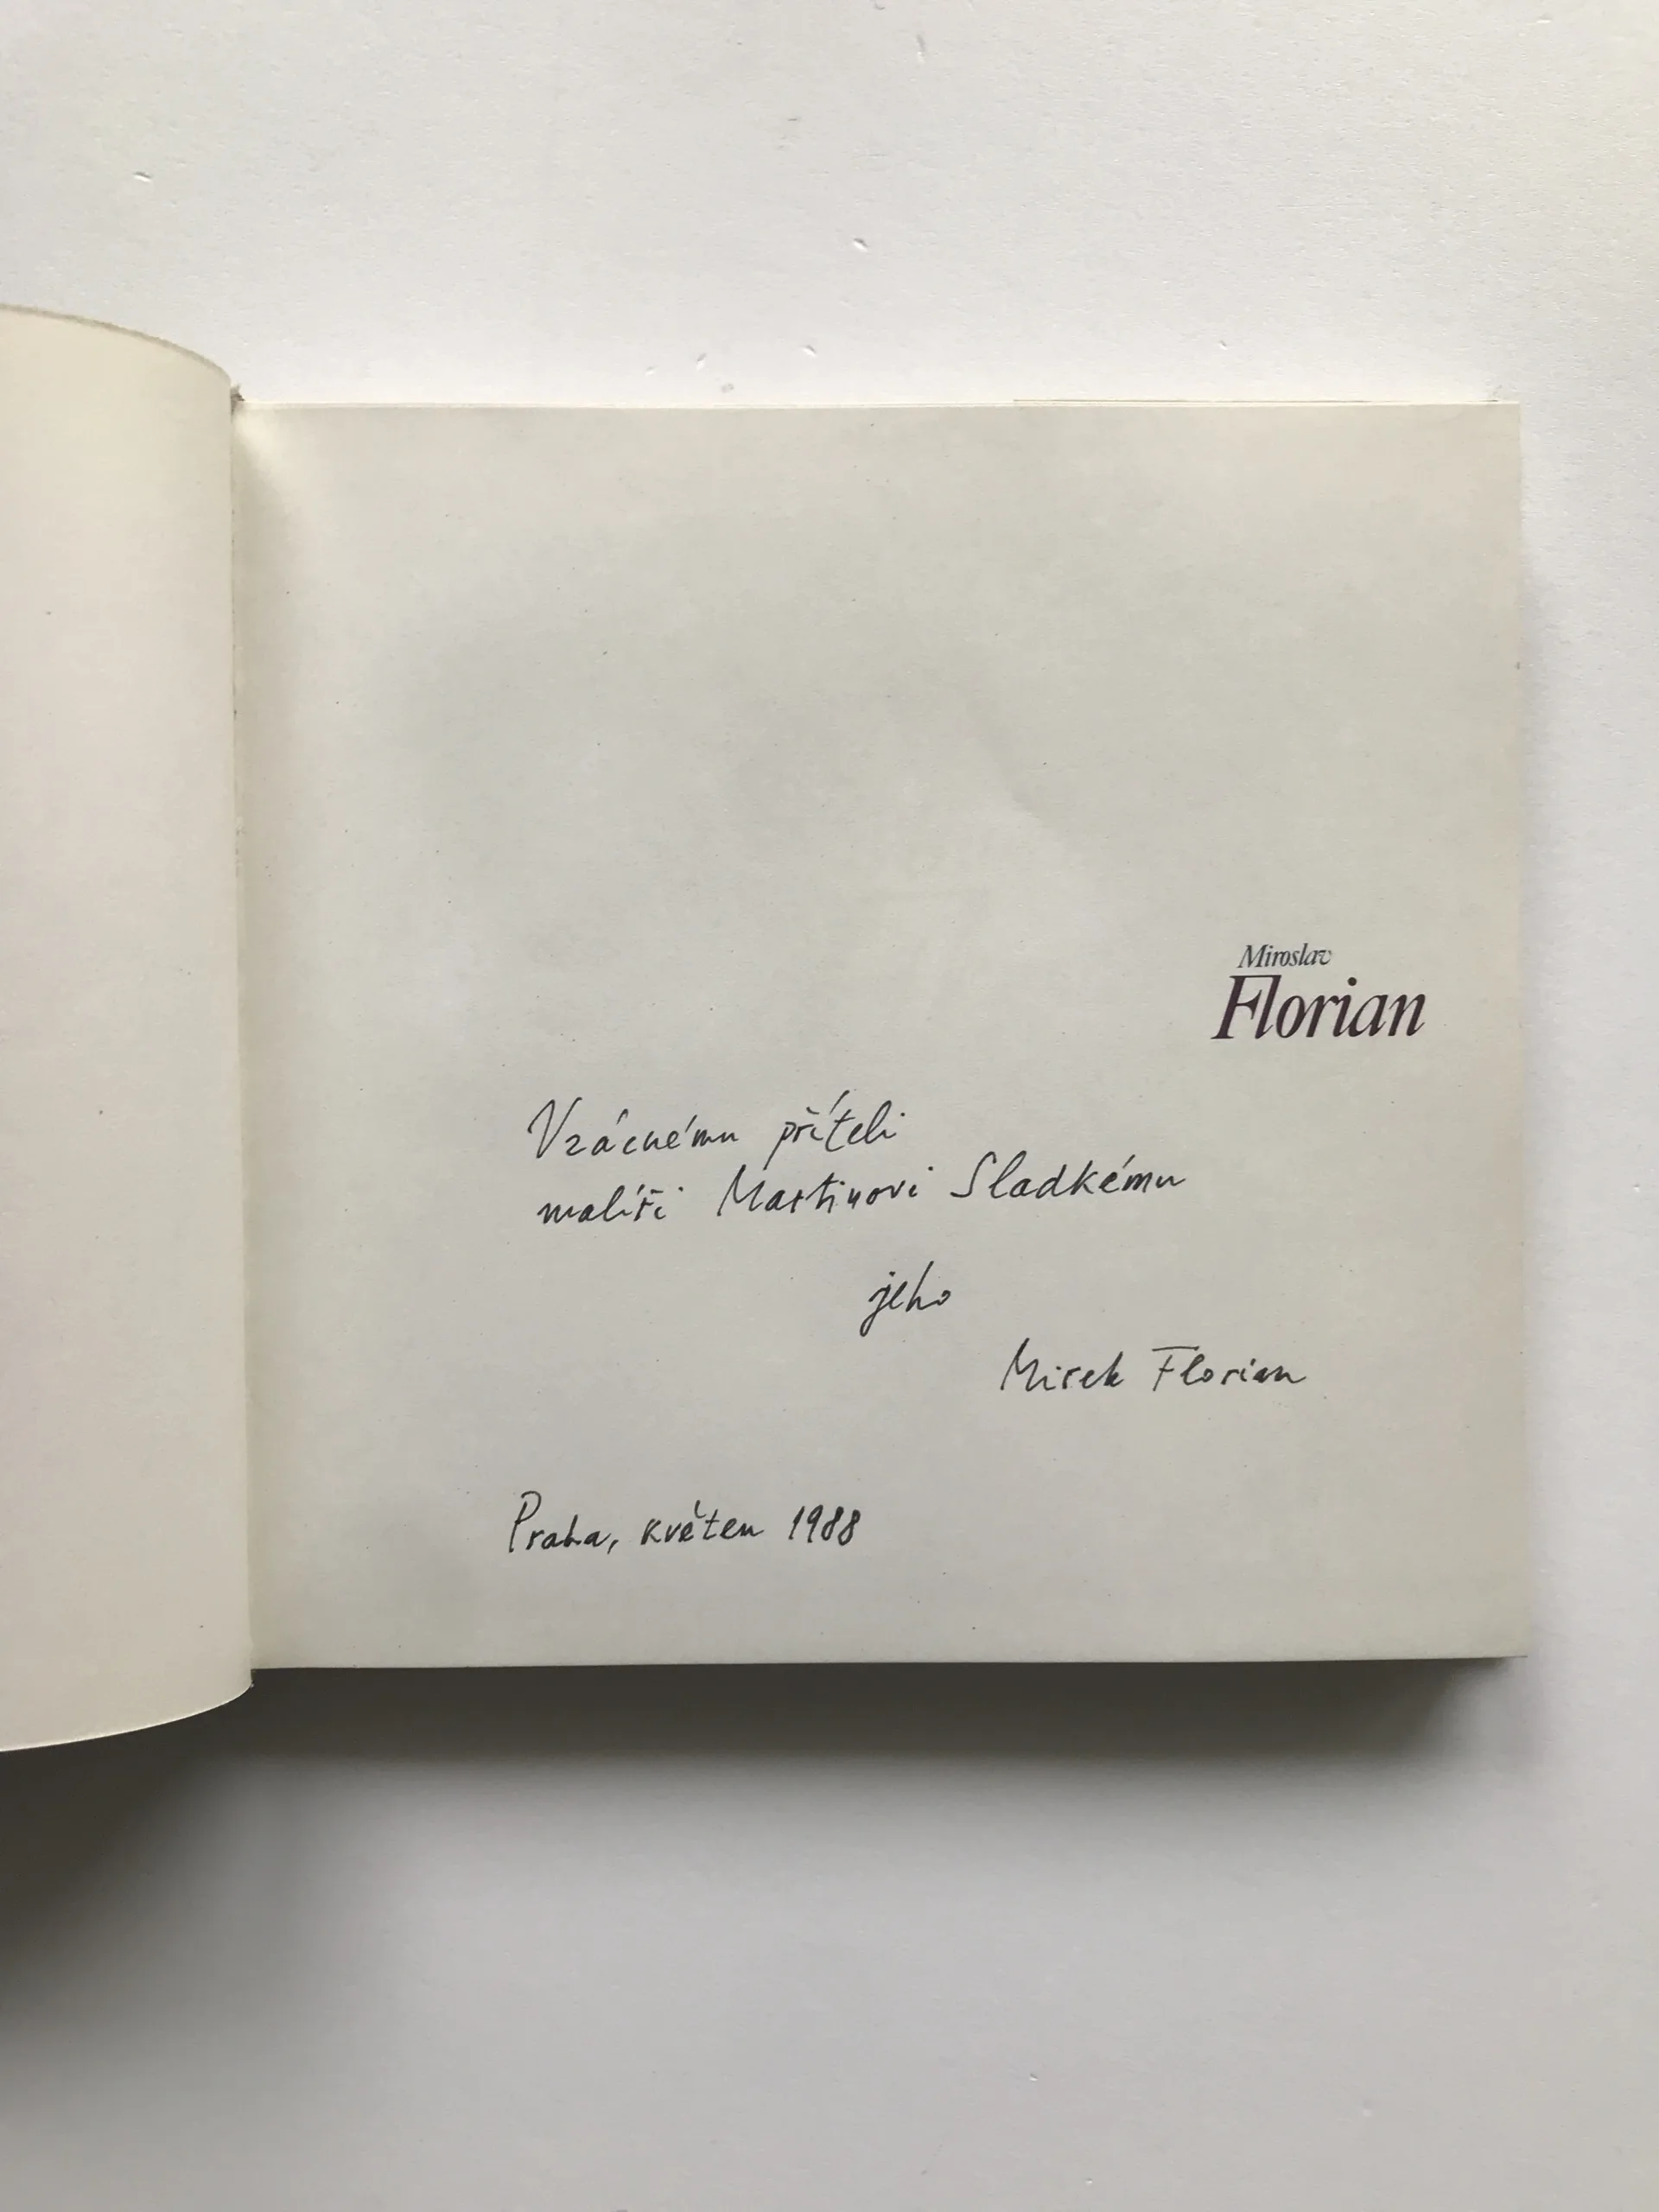 Miroslav
Florian
Vzácnému příteli
malíři Martinovi Sladkému
jeho
Mirek Florian
Praha, květen 1988